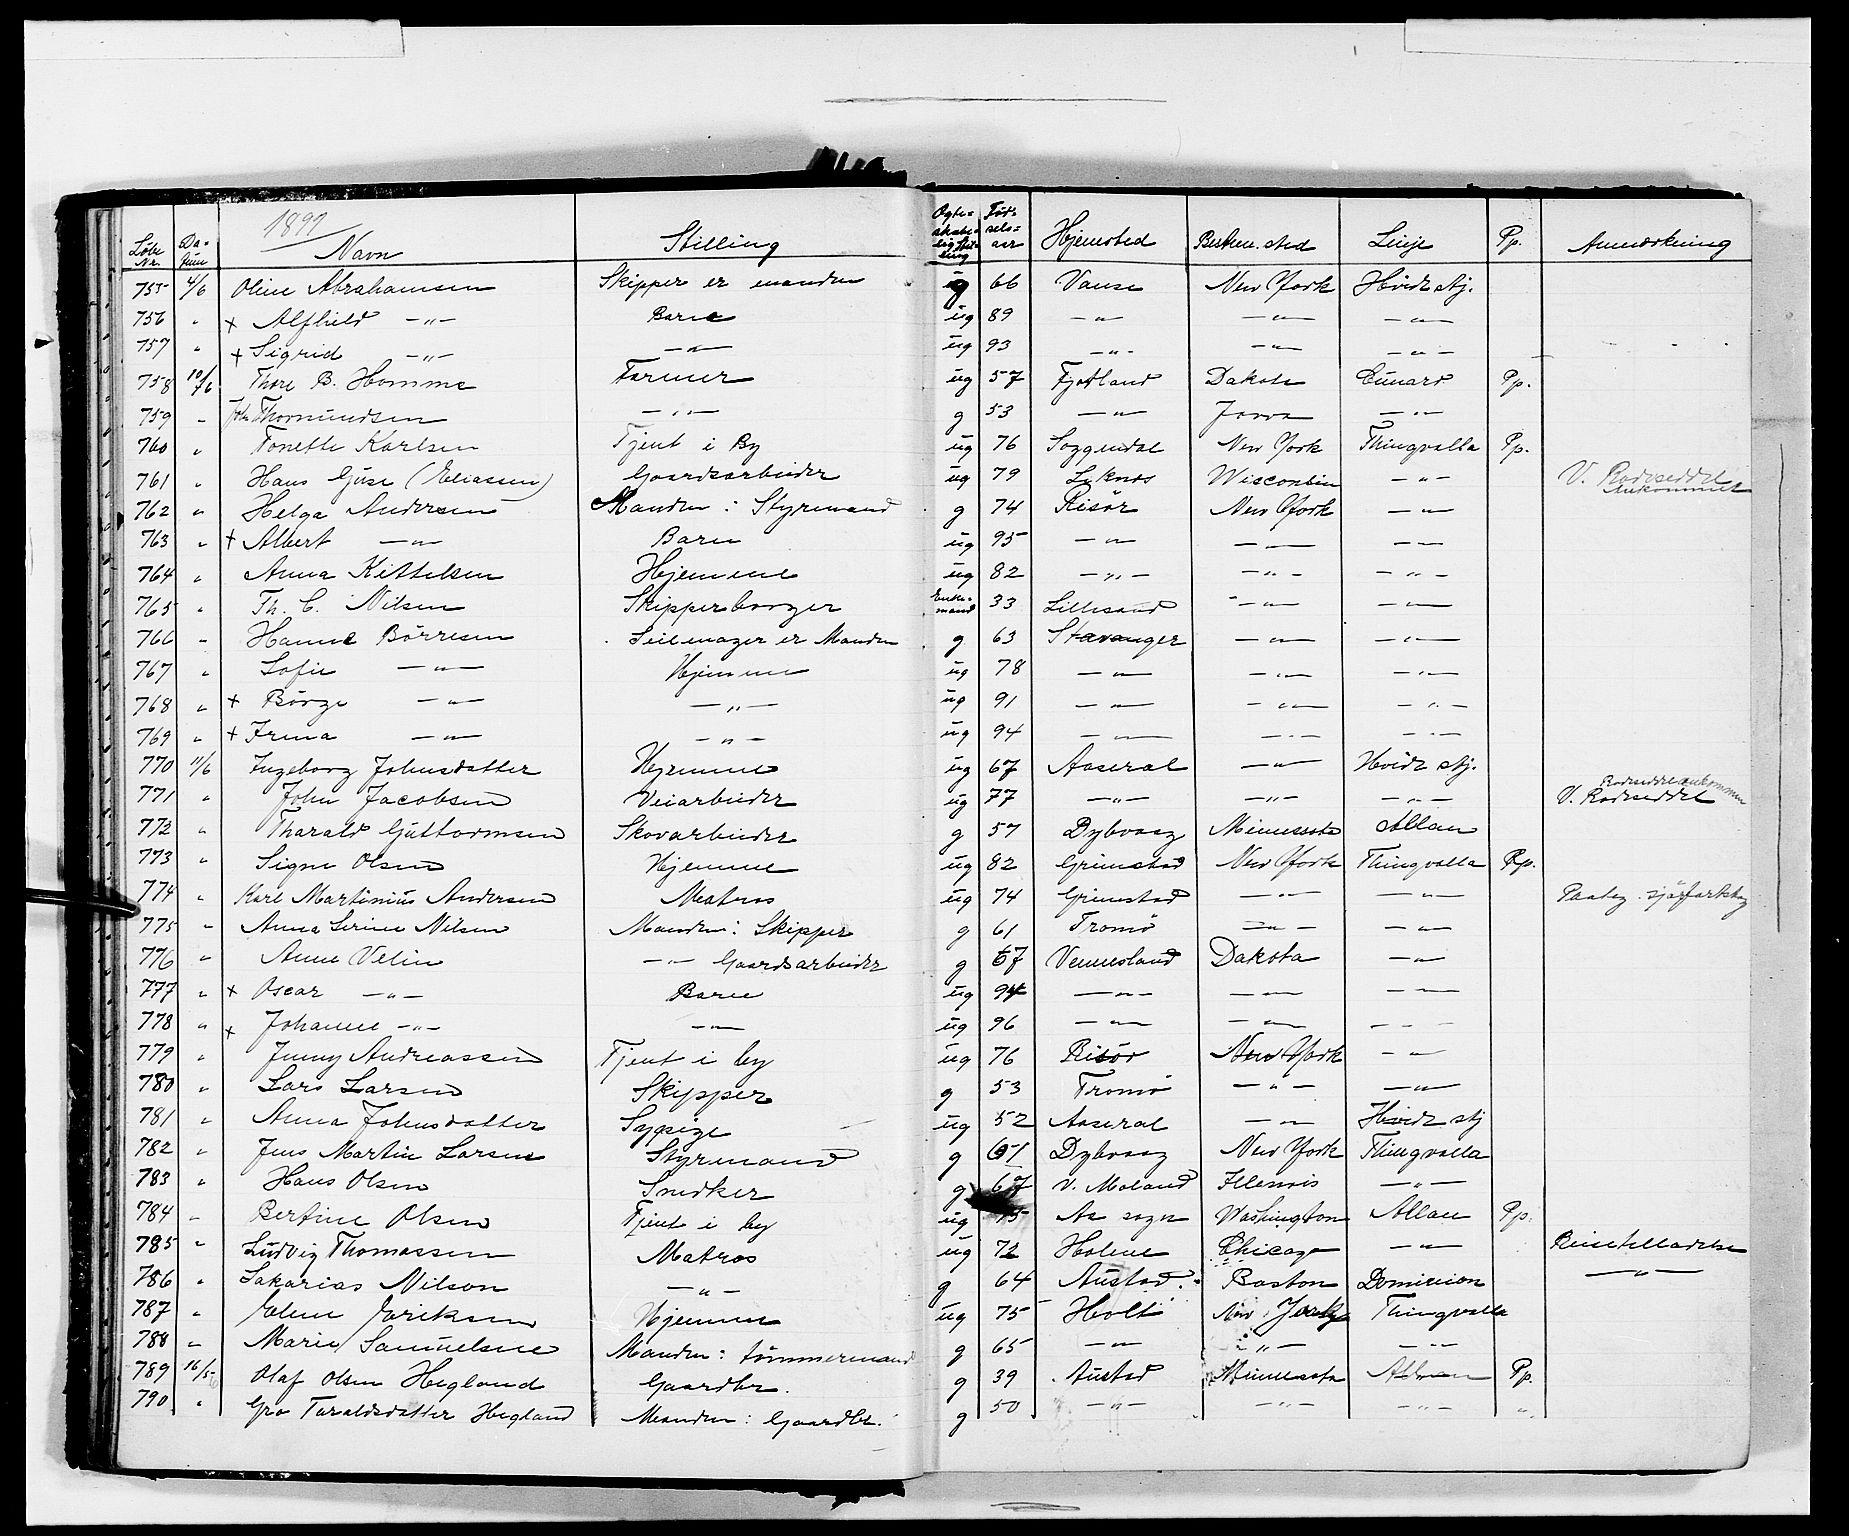 1897
Løbe Nr. Da- tum Navn Stilling Ægte- skabe- lig Stil- ling Fød- sels- aar Hjemsted Bestem. sted Linje Pp. Anmerkning
755 4/6 Oline Abrahamsen Skipper er manden g 66 Vanse New York Hvide stj.
756 " + Alfhild —"— Barn ug 89 —"— —"— —"—
757 " + Sigrid —"— —"— ug 93 —"— —"— —"—
758 10/6 Thore B. Homme Farmer ug 57 Fjotland Dakota Cunard Pp.
759 " Thormundsen —"— g 53 —"— Jowa —"—
760 " Tonette Karlsen Tjent i By ug 76 Soggendal New York Thingvalla Pp.
761 " Hans Gjøse (Eliassen) Gaardsarbeider ug 79 Leknes Wisconsin —"— V. Rodeseddel Ankommet
762 " Helga Andersen Manden: Styremand g 74 Risør New York —"—
763 " + Albert —"— Barn ug 95 —"— —"— —"—
764 " Anna Kittelsen Hjemme ug 82 —"— —"— —"—
765 " Th. C. Nilsen Skipperborger Enke- mand 33 Lillesand —"— —"—
766 " Hanne Börresen Seilmager er Manden g 63 Stavanger —"— —"—
767 " Sofie —"— Hjemme ug 78 —"— —"— —"—
768 " + Börge —"— —"— ug 91 —"— —"— —"—
769 " + Irma —"— —"— ug 94 —"— —"— —"—
770 11/6 Ingeborg Johnsdatter Hjemme ug 67 Aaseral —"— Hvide stj.
771 " John Jacobsen Veiarbeider ug 77 —"— —"— —"— V. Rodeseddel Rodeseddel ankommen
772 " Tharald Guttormsen Skovarbeider g 57 Dybvaag Minnesota Allan
773 " Signe Olsen Hjemme ug 82 Grimstad New York Thingvalla Pp.
774 " Karl Martinius Andersen Matros ug 74 Grimstad —"— —"— Paateg. sjöfartsbog
775 " Anna Serine Nilsen Manden: Skipper g 61 Tromø —"— —"—
776 " Anne Velin —"— Gaardsarbeider g 67 Vennesland Dakota —"—
777 " + Oscar —"— Barn ug 94 —"— —"— —"—
778 " + Johanne —"— —"— ug 96 —"— —"— —"—
779 " Jenny Andreassen Tjent i by ug 76 Risör New York —"—
780 " Lars Larsen Skipper g 53 Tromø —"— —"—
781 " Anna Johnsdatter Sypige ug 52 Aaseral —"— Hvide stj
782 " Jens Martin Larsen Styremand g 61 Dybvaag New York Thingvalla
783 " Hans Olsen Snedker g 67 V. Moland Illenois —"—
784 " Bertine Olsen Tjent i by ug 75 Aa sogn Washington Allan Pp.
785 " Ludvig Thomassen Matros ug 72 Holme Chicago —"— Reisetilladelse
786 " Sakarias Nilson —"— g 64 Austad Boston Dominion —"—
787 " Elene Eriksen Hjemme ug 75 Holt New York Thingvalla
788 " Marie Samuelsen Manden: tömmermand g 65 —"— —"— —"—
789 16/5 Olaf Olsen Hegland Gaardbr. g 39 Austad Minnesota Allan Pp.
790 " Gro Taraldsdatter Hegland Manden: Gaardbr. g 50 —"— —"— —"— "